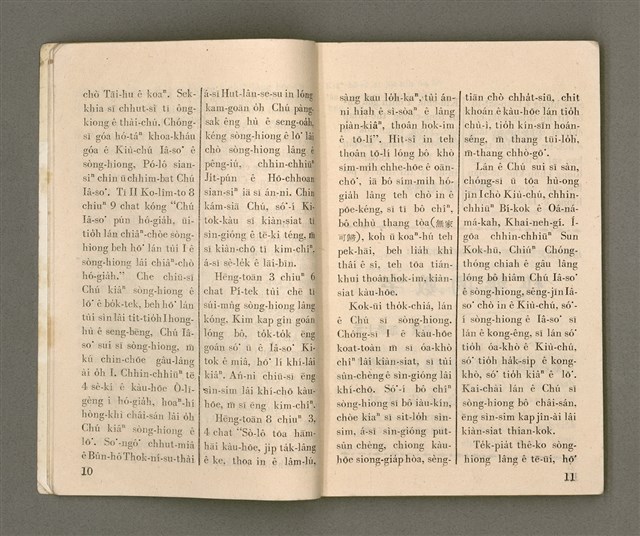 chò Tāi-hu ê koaⁿ. Sek-
khia sī chhut-sī tī ông-
kiong ê thài-chú. Chóng-
sī góa hó-táⁿ khoa-khán
góa ê Kiù-chú Iâ-so͘ ê
sòng-hiong, Pó-lô sian-
siⁿ chin ū chhim-bat Chú
Iâ-so͘. Tī II Ko-lîm-to 8
chiuⁿ 9 chat kóng "Chú
Iâ-so͘ pún hó-giáh, ūi-
tióh lán chiâⁿ-chòe sòng-
hiong beh hō͘ lán tùi I ê
sòng-hiong lâi chiâⁿ-chò
hó-giáh." Che chiū-sī
Chú kiâⁿ sòng-hiong ê
lō͘ ê bók-tek, beh hō͘ lán
tùi sìn lâi tit-tióh Ihong-
hù ê seng-bēng, Chú Iâ-
so͘ sui sī sòng-hiong, m̄
kú chin-chōe gâu-lâng
ài óh I. Chhin-chhiūⁿ tē
4 sè-kí ê kàu-hōe Ò-lī-
gēng i hó-giáh, hoaⁿ-hí
hòng-khì châi-sán lâi óh
Chú kiâⁿ sòng-hiong ê
lō͘. So͘-ngô͘ chhut-miâ
ê Bûn-hó Thok-nī-su-thài
á-sī Hut-lân-se-su in lóng
kam-goān óh Chú pàng-
sak êng hù ê seng-oáh,
kéng sòng-hiong ê lō͘ lâi
chò sòng-hiong lâng ê
pêng-iú, chhin-chhiūⁿ
Jít-pún ê Hô-chhoan
sian-siⁿ iā sī án-ni. Chin
kám-siā Chú, só͘-í Ki-
tok-kàu sī kiàn-siat tī
sin-gióng ê tē-ki téng, m̄
sī kiàn-chō tī kim-chîⁿ,
á-sī sè-lék ê lāi-bīn.
Hêng-toān 3 chiuⁿ 6
chat Pí-tek túi chē tī
súi-mn̂g sòng-hiong lâng
kóng, Kim kap gîn goán
lóng bô, tók-tók êng
goán só͘ ū ê Iâ-so͘ Ki-
tok ê miâ, hō͘ lí khí-lâi
kiâⁿ. Án-ni chiū-sī êng
sìn-sim lâi khí-chō kàu-
hōe, m̄ sī êng kim-chîⁿ.
Hêng-toān 8 chiuⁿ 3,
4 chat "Sò-lô tōa hām-
hāi kàu-hōe, jip ták-lâng
ê ke, thoa in ê lâm-lú,
10
sàng kau lóh-kaⁿ, tùi án-
ni hiah ê sì-sòaⁿ ê lâng
piàn-kiâⁿ, thoân hok-im
ê tō-lí". Hit-sî in teh
thoân tō-lí lóng bô khò
sim-mih chhe-hōe ê oān-
chō͘, iā bô sim-mih hó-
giáh lâng teh chò in ê
pōe-kéng, sī tī bô chîⁿ,
bô chhù thang tòa(無家
可歸), koh ū koaⁿ-hú teh
pek-hāi, beh liáh khì
thâi ê sî, teh tōa tián-
khui thoân hok-im, kiàn-
siat kàu-hōe.
Kok-ūi thók-chiá, lán
ê Chú sī sòng-hiong,
Chóng-sī I ê kàu-hōe
koat-toàn m̄ sī óa-khò
chîⁿ lâi kiàn-siat, sī tùi
sūn-chèng ê sìn-gióng lâi
khí-chō. Só͘-í bô chîⁿ
sòng-hiong sī bô iàu-kín,
chòe kiaⁿ sī sit-lóh sìn-
sim, á-sī sìn-gióng put-
sûn chèng, chiong kàu-
hōe siong-giáp hòa, sèng-
tiān chò chhát-siū, chit
khoán ê kàu-hōe lán tióh
chù-ì, tióh kín-sīn hoán-
séng, m̄ thang tūi-lóh,
m̄-thang chhò-gō͘.
Lán ê Chú sui sī sàn,
chóng-sī ū tōa hù-ong
jīn I chò Kiù-chú, chhin-
chhiūⁿ Bí-kok ê Oâ-ná-
má-kah, Khai-neh-gí. I-
góa chhin-chhiūⁿ Sun
Kok-hū, Chiúⁿ Chóng-
thóng chiah ê gâu lâng
lóng bô hiâm Chú Iâ-so͘
ê sòng-hiong, sêng-jīn Iâ-
so͘ chò in ê Kiù-chú, só͘-
í sòng-hiong ê Chú sī
lán ê kong-êng, sī lán só͘
tióh óa-khò ê Kiù-chú,
só͘ tióh hák-sip ê kong-
khò, só͘ tióh kiâⁿ ê lō͘.
Kai-chài lán ê Chú sī
sòng-hiong bô châi-sán,
êng sìn-sim kap jîn-ài lâi
kiàn-siat thian-kok.
Ték-piát thê-ko sòng-
hiong lâng ê tē-ūi, hō͘
11